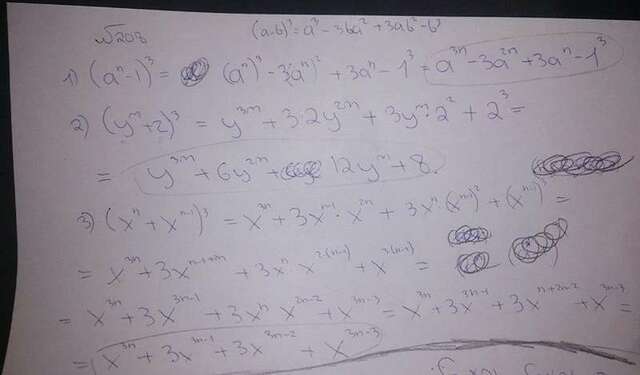 №203 (a-b)³=a³-3ba²+3ab²-b³
1) (aⁿ-1)³ = (aⁿ)³-3(aⁿ)²+3aⁿ-1³=a³ⁿ-3a²ⁿ+3aⁿ-1³
2) (yᵐ+2)³ = y³ᵐ+3·2y²ᵐ+3yᵐ·2²+2³=
= y³ᵐ+6y²ᵐ+12yᵐ+8.
3) (xⁿ+xⁿ⁻¹)³ = x³ⁿ+3xⁿ⁻¹·x²ⁿ+3xⁿ·(xⁿ⁻¹)²+(xⁿ⁻¹)³=
= x³ⁿ+3xⁿ⁻¹⁺²ⁿ+3xⁿ·x²⁽ⁿ⁻¹⁾+x³⁽ⁿ⁻¹⁾=
= x³ⁿ+3x³ⁿ⁻¹+3xⁿx²ⁿ⁻²+x³ⁿ⁻³=x³ⁿ+3x³ⁿ⁻¹+3xⁿ⁺²ⁿ⁻²+x³ⁿ⁻³=
= x³ⁿ+3x³ⁿ⁻¹+3x³ⁿ⁻²+x³ⁿ⁻³